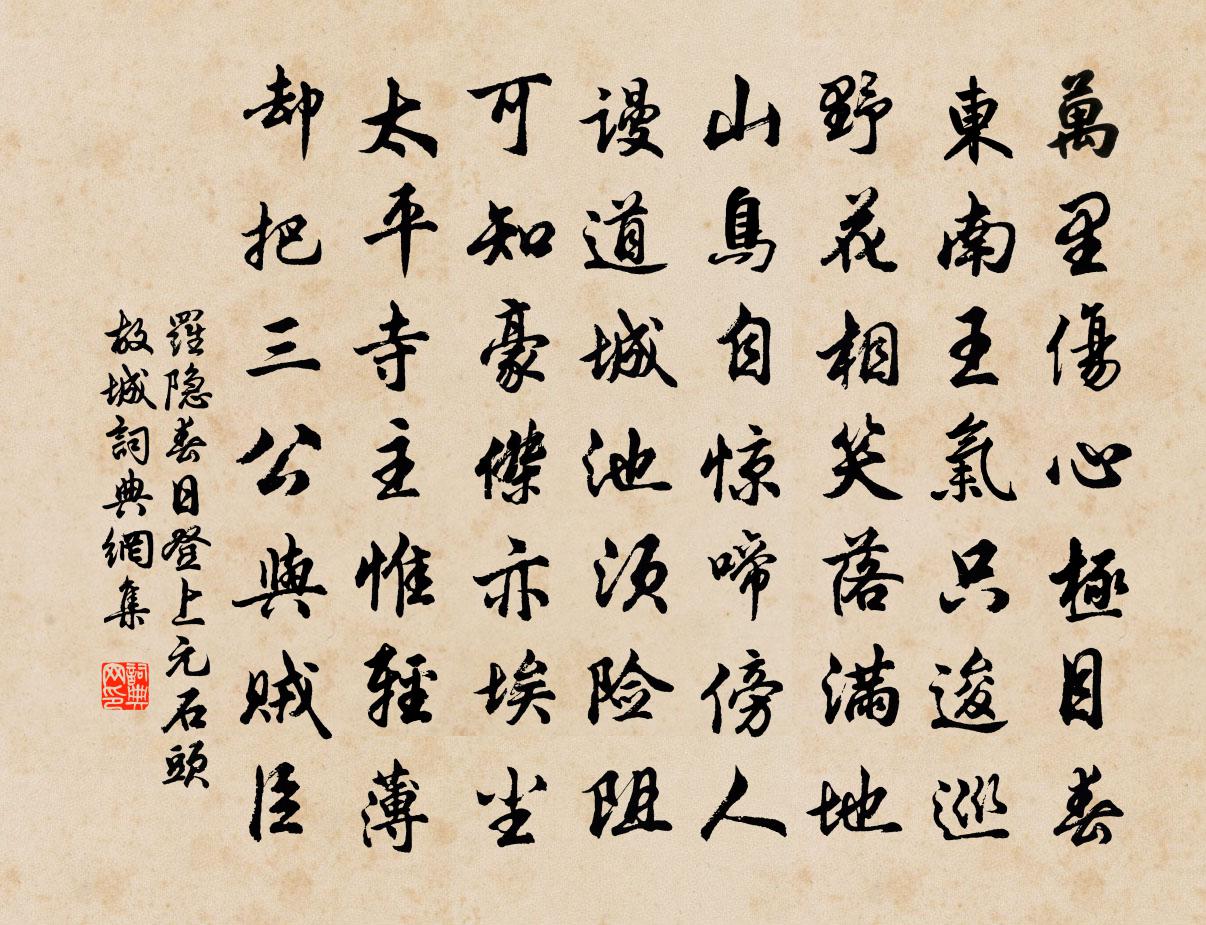 萬里傷心極目春
東南王氣只逡巡
野花相笑落滿地
山鳥自惊啼傍人
谩道城池須险阻
可知豪傑亦埃尘
太平寺主惟輕薄
却把三公與賊臣
羅隐春日登上元石頭
故城詞典網集
詞典网印